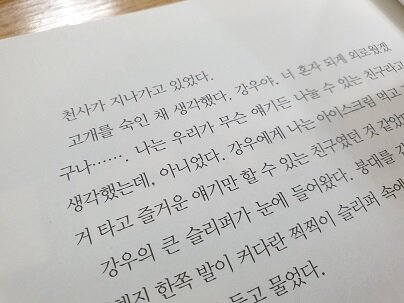 천사가 지나가고 있었다.
고개를 숙인 채 생각했다. 강우야. 너 혼자 되게 외로웠겠
구나……. 나는 우리가 무슨 얘기든 나눌 수 있는 친구라고
생각했는데, 아니었다. 강우에게 나는 아이스크림 먹고
거 타고 즐거운 얘기만 할 수 있는 친구였던 것 같았
강우의 큰 슬리퍼가 눈에 들어왔다. 붕대를
한쪽 발이 커다란 찍찍이 슬리퍼 속에
들고 물었다.